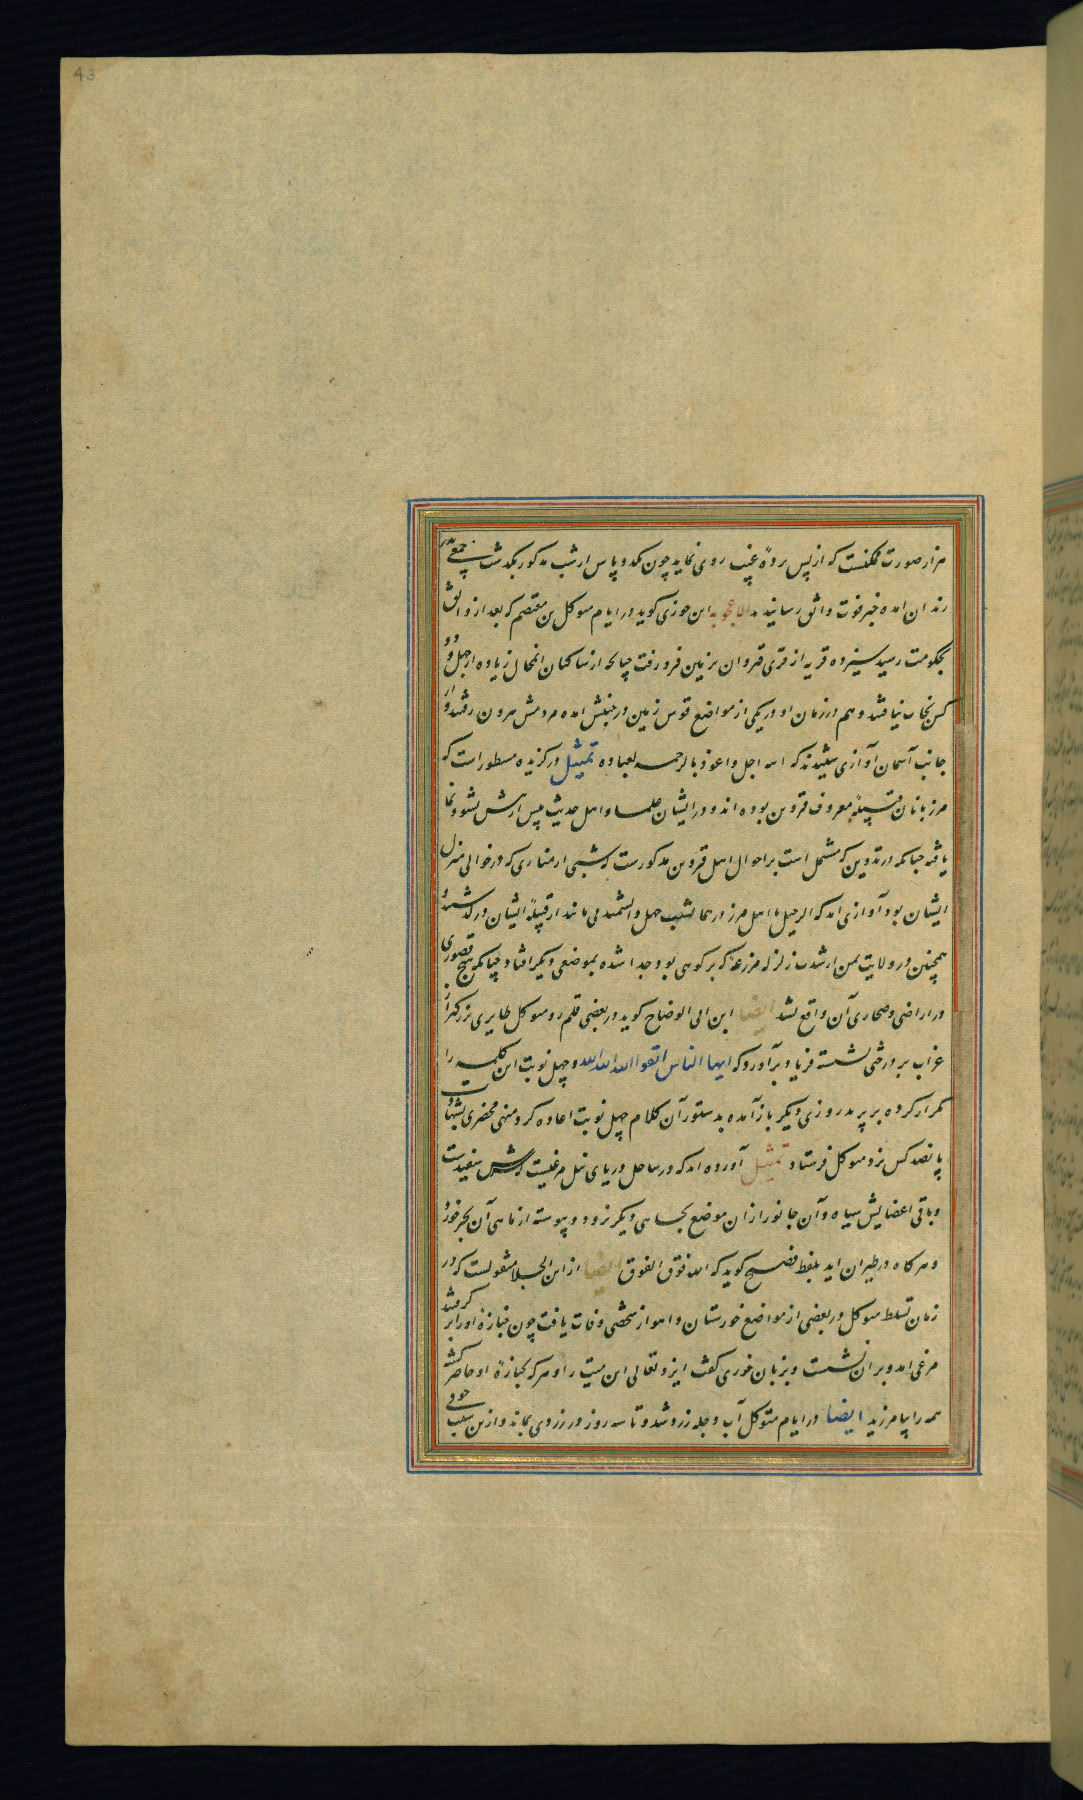 43
هزار صورت ممکنست که از پس پردهٔ غیب روی نماید چون یکدو پاس از شب مذکور بگذشت جمعی بدر
زندان آمده خبر فوت واثق رسانیدند الاعجوبه ابن جوزی کوید در ایام متوکل بن معتصم که بعد از واثق
بحکومت رسید سیزده قریه از قری قیروان بزمین فرو رفت چنانچه از ساکنان انمحال زیاده از چهل و دو
کس نجات نیافتند و هم در زمان او در یکی از مواضع قومس زمین در جنبش امده مردمش بیرون رفتند و از
جانب آسمان آوازی شنیدند که الله اجل و اعوذ بالرحمه لعباده تمثیل در کزیده مسطور است که
مرزبانان قبیلهٔ معروف قزوین بوده اند و در ایشان علما و اهل حدیث بیش از بیش نشو و نما
یافته چنانکه در تدوین که مشتمل است بر احوال اهل قزوین مذکورست که شبی از مناری که در حوالی منزل
ایشان بود آوازی امد که الرحیل یا اهل مرز و همانشب چهل و خانمند از قبیلهٔ ایشان در کذشتند و
همچنین در ولایت یمن از شدت زلزله مزرعهٔ که بر کوهی بود جدا شده بموضعی دیکر افتاد چنانکه هیچ قصوری
در اراضی و صحاری آن واقع نشد ایضا ابن ابی الوضاح کوید در بعضی قلمرو متوکل طایری بزرکتر از
غراب بر درختی نشسته فریاد برآورد که ایها الناس اتقوا الله الله الله و چهل نوبت این کلمه را
تکرار کرده بر پرید روز دیکر بازآمده بدستور آن کلام چهل نوبت اعاده کرد و منهی محضری بشهادت
پانصد کس نزد متوکل فرستاد تمثیل آورده اند که در ساحل دریای نیل مرغیست که سرش سفیدست
و باقی اعضایش سیاه و آن جانور از ان موضع بجایی دیکر نرود و پیوسته از ماهی آن بحر خورد
و هر کاه در طیران اید بلفظ فصیح کوید که الله فوق الفوق ایضا از ابن الجلا منقولست که در
زمان تسلط متوکل در بعضی از مواضع خوزستان و اهواز شخصی وفات یافت چون جنازهٔ او را برکرفتند
مرغی امد و بر ان نشست و بزبان خوزی کفت ایزد تعالی این میت را و هر که بجنازهٔ او حاضر کشته
همه را بیامرزید ایضا در ایام متوکل آب دجله زرد شد و تا سه روز در زردی بماند و ازین سبب خوفی